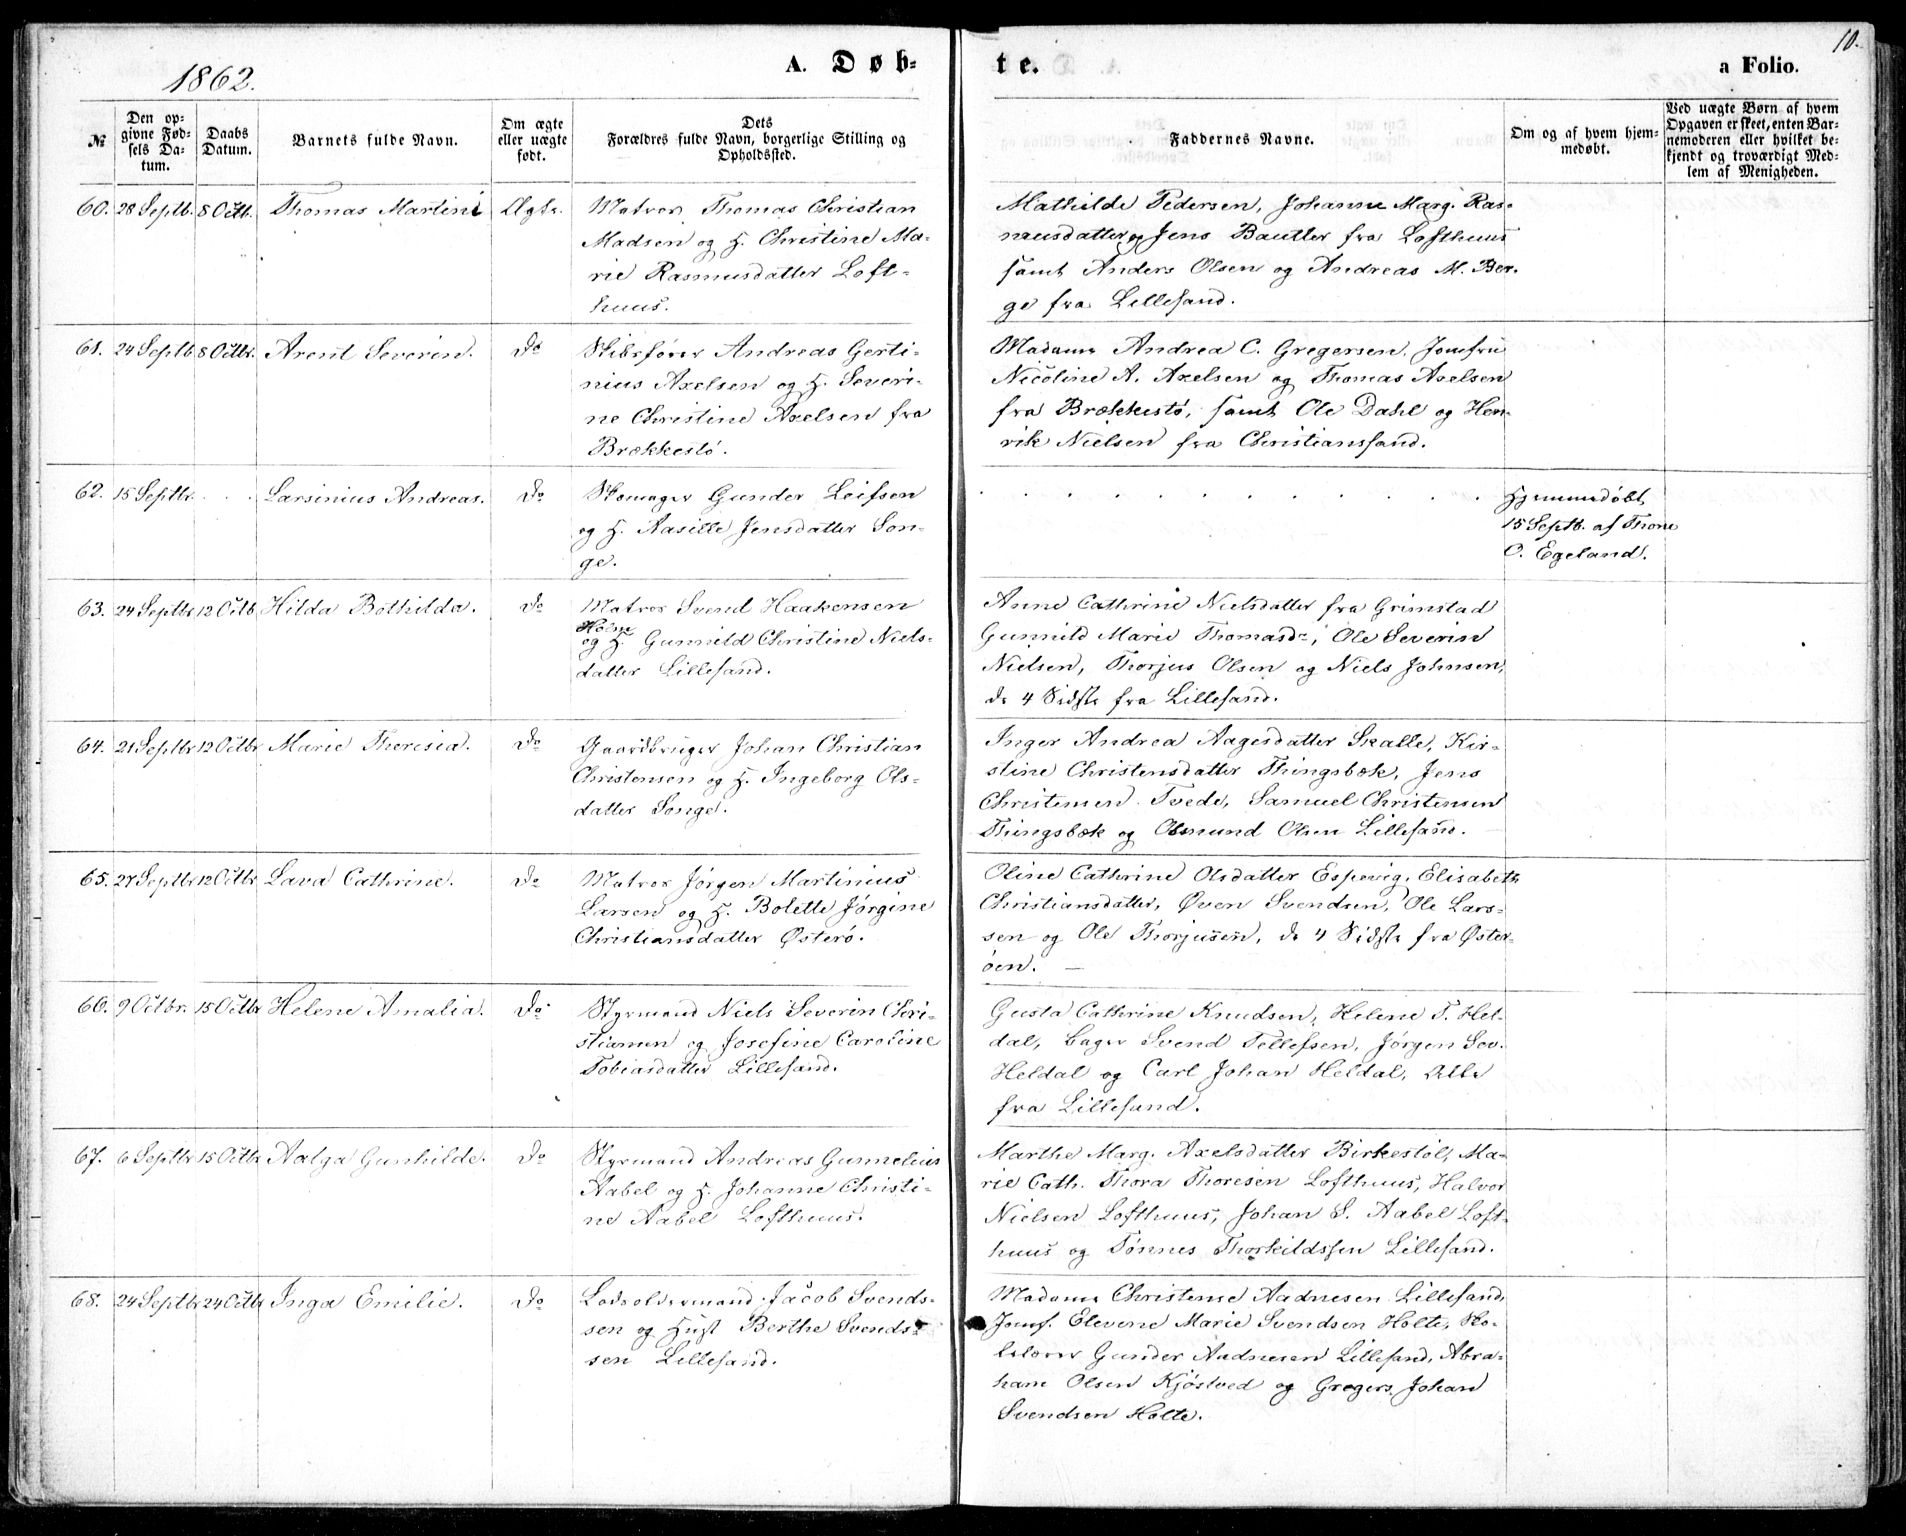 1862.
A. Døb-
te.
10.
a Folio.
№
Den op-
givne Fød-
sels Da-
tum.
Daabs
Datum.
Barnets fulde Navn.
Om ægte
eller uægte
født.
Dets
Forældres fulde Navn, borgerlige Stilling og
Opholdssted.
Faddernes Navne.
Om og af hvem hjem-
medøbt.
Ved uægte Børn af hvem
Opgaven er skeet, enten Bar-
nemoderen eller hvilket be-
kjendt og troværdigt Med-
lem af Menigheden.
60. 28 Septb. 8 Octb. Thomas Martini Ægte. Matros Thomas Christian
Madsen og H. Christine Ma-
rie Rasmusdatter Loft-
huus.
Mathilde Pedersen, Johanne Marg. Ras-
musdatter og Jens Bautler fra Lofthuus
samt Anders Olsen og Andreas M. Ber-
ge fra Lillesand.
61. 24 Septb. 8 Octbr. Arent Severin. Do Skibsfører Andreas Gerti-
nius Axelsen og H. Severi-
ne Christine Axelsen fra
Brækkestö.
Madame Andrea C. Gregersen, Jomfru
Nicoline A. Axelsen og Thomas Axelsen
fra Brækkestö, samt Ole Dahl og Hen-
rik Nielsen fra Christianssand.
62. 15 Septbr. . . Larsinius Andreas. Do Skomager Gunder Leifsen
og H. Aasille Jensdatter Son-
ge.
Hjemmedöbt
15 Septb. af Thone
O. Egeland.
63. 24 Septbr 12 Octb. Hilda Bothilda. Do Matros Svend Haakensen
Holm
og H. Gunnild Christine Niels-
datter Lillesand.
Anne Cathrine Nielsdatter fra Grimstad
Gunnild Marie Thomasdr, Ole Severin
Nielsen, Thorjus Olsen og Niels Johnsen,
de 4 Sidste fra Lillesand.
64. 21 Septbr 12 Octbr Marie Theresia. Do Gaardbruger Johan Christian
Christensen og H. Ingeborg Ols-
datter Songe.
Inger Andrea Aagesdatter Skalle, Kir-
stine Christensdatter Thingsbæk, Jens
Christensen Tvede, Samuel Christensen
Thingsbæk og Osmund Olsen Lillesand.
65. 27 Septbr 12 Octbr Lava Cathrine. Do Matros Jörgen Martinius
Larsen og H. Bolette Jörgine
Christiansdatter Østerö.
Oline Cathrine Olsdatter Espevig, Elisabeth
Christiansdatter, Øven Svendsen, Ole Lars-
sen og Ole Thorjussen, de 4 Sidste fra Øster-
öen. —
66. 9 Octbr. 15 Octbr Helene Amalia. Do Styrmand Niels Severin Chri-
stiansen og Josefine Caroline
Tobiasdatter Lillesand.
Gusta Cathrine Knudsen, Helene T. Hel-
dal, Bager Svend Tellefsen, Jörgen Sev.
Heldal og Carl Johan Heldal, Alle
fra Lillesand.
67. 6 Septbr 15 Octbr Aalga Gunhilde. Do Styrmand Andreas Gunnelius
Aabel og H. Johanne Christi-
ne Aabel Lofthuus.
Marthe Marg. Axelsdatter Birkestöl, Ma-
rie Cath. Thora Thoresen Lofthuus, Halvor
Nielsen Lofthuus, Johan S. Aabel Loft-
huus og Tönnes Thorkildssen Lillesand.
68. 24 Septbr 24 Octbr Inga Emilie. Do Lodsoldermand Jacob Svends-
sen og Hust Berthe Svends-
sen Lillesand.
Madame Christense Aadnesen Lillesand,
Jomf. Elevene Marie Svendsen Holte, Sko-
lelærer Gunder Aadnesen Lillesand, Abra-
ham Olsen Kjöstved og Gregers Johan
Svendsen Holte.